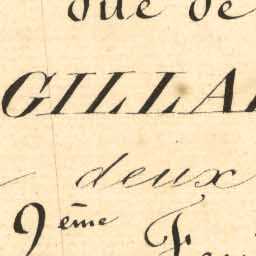 due de
GILLA
deux
9ème Feu